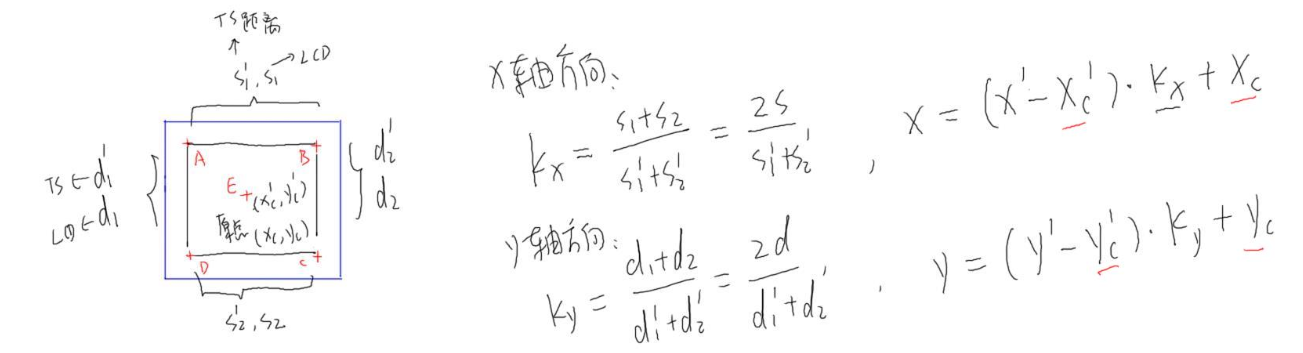 TS距离
s₁', s₁ → LCD
A B
TS ← d₁'
LCD ← d₁
d₂'
d₂
E (x_c', y_c')
原点 (x_c, y_c)
D C
s₂', s₂
X轴方向:
k_x = (s₁+s₂)/(s₁'+s₂') = 2s/(s₁'+s₂') , x = (x' - x_c')·k_x + x_c
y轴方向:
k_y = (d₁+d₂)/(d₁'+d₂') = 2d/(d₁'+d₂') , y = (y' - y_c')·k_y + y_c